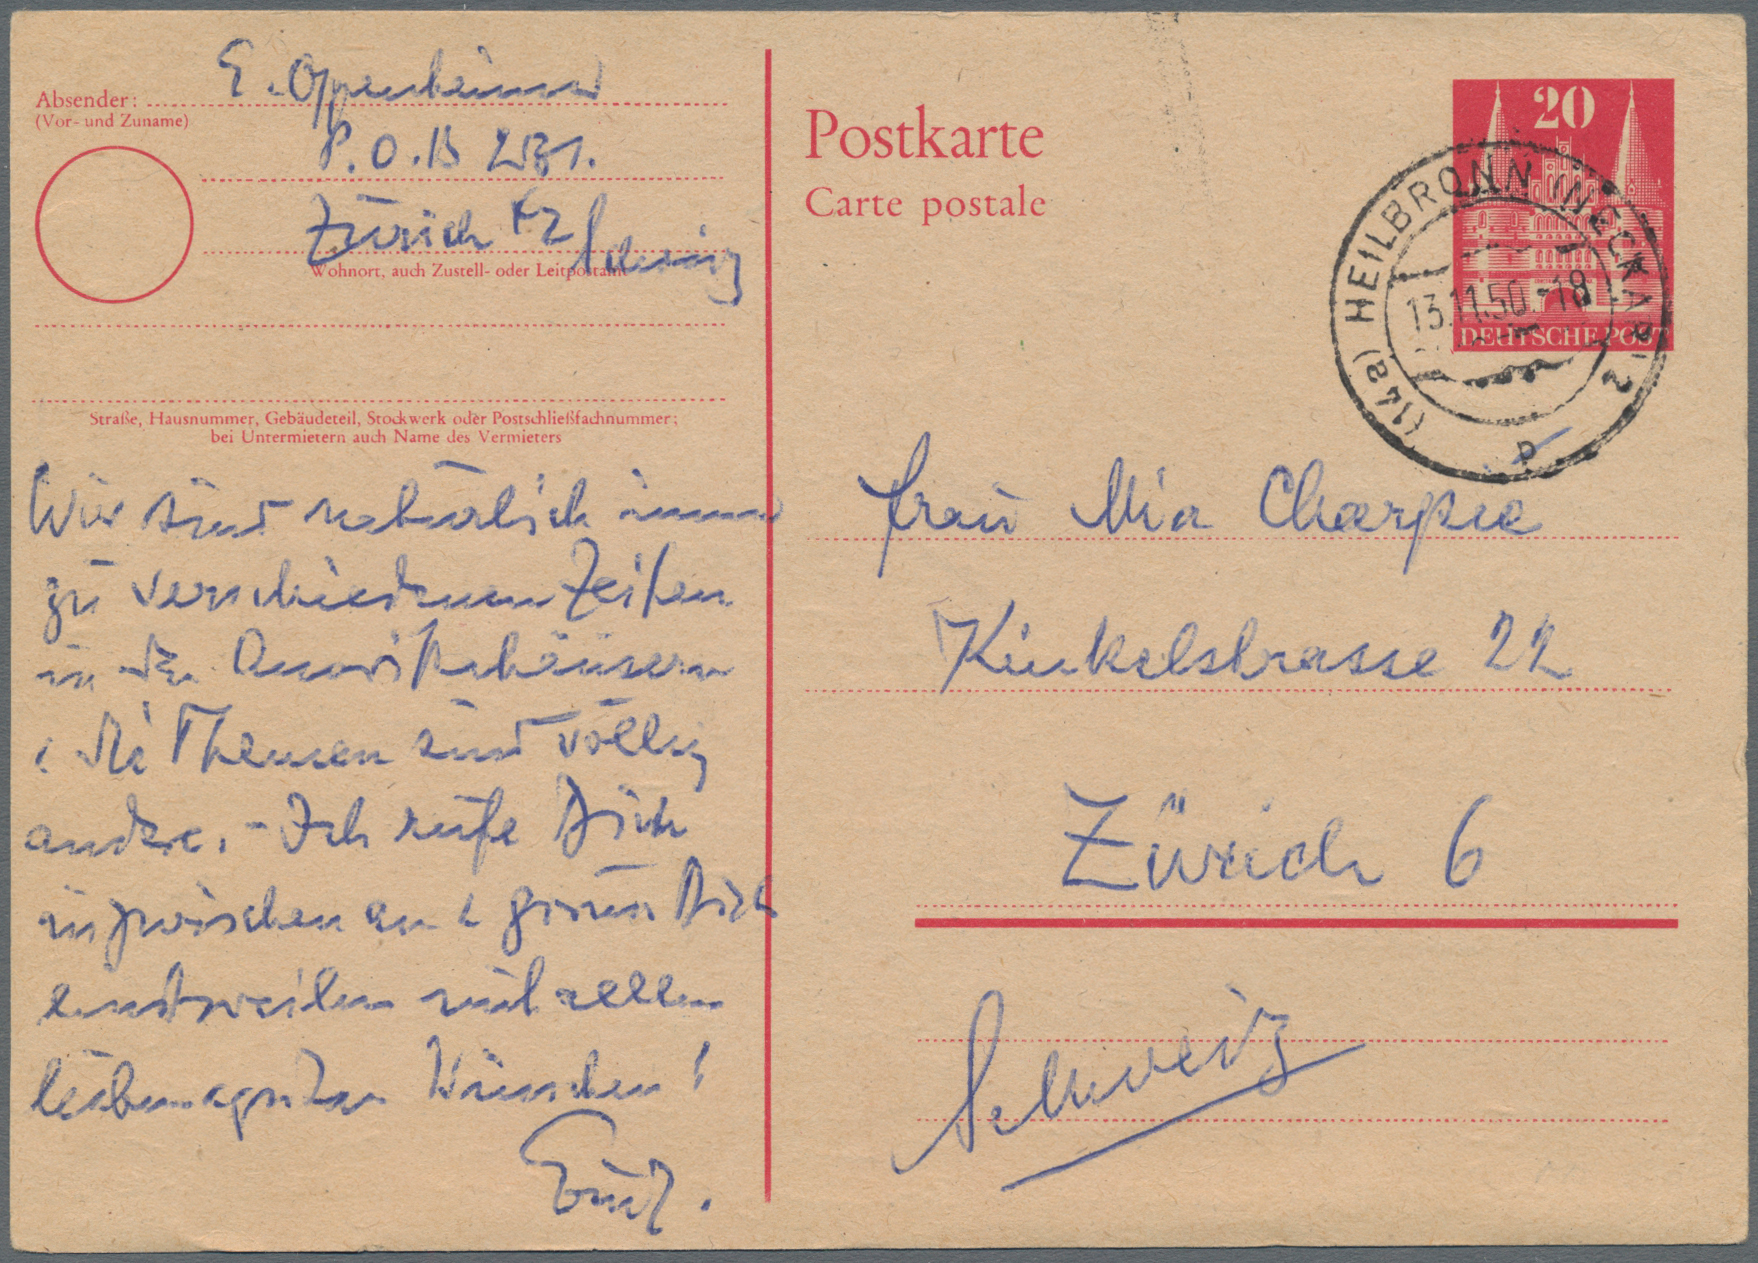 Absender:
(Vor- und Zuname)
E. Oppenheimer
P.O.B
Zürich
Schweiz
Wohnort, auch Zustell- oder Leitpostamt
Straße, Hausnummer, Gebäudeteil, Stockwerk oder Postschließfachnummer;
bei Untermietern auch Name des Vermieters
Wir sind natürlich immer
zu verschiedenen Zeiten
in den
die Themen sind völlig
andre. - Ich rufe Dich
inzwischen an & grüsse Dich
einstweilen mit allen
Wünschen!
Postkarte
Carte postale
20
DEUTSCHE POST
(14a) HEILBRONN (NECKAR) 2
13.11.50.-18
Frau Mia Charpie
Kinkelstrasse 22
Zürich 6
Schweiz